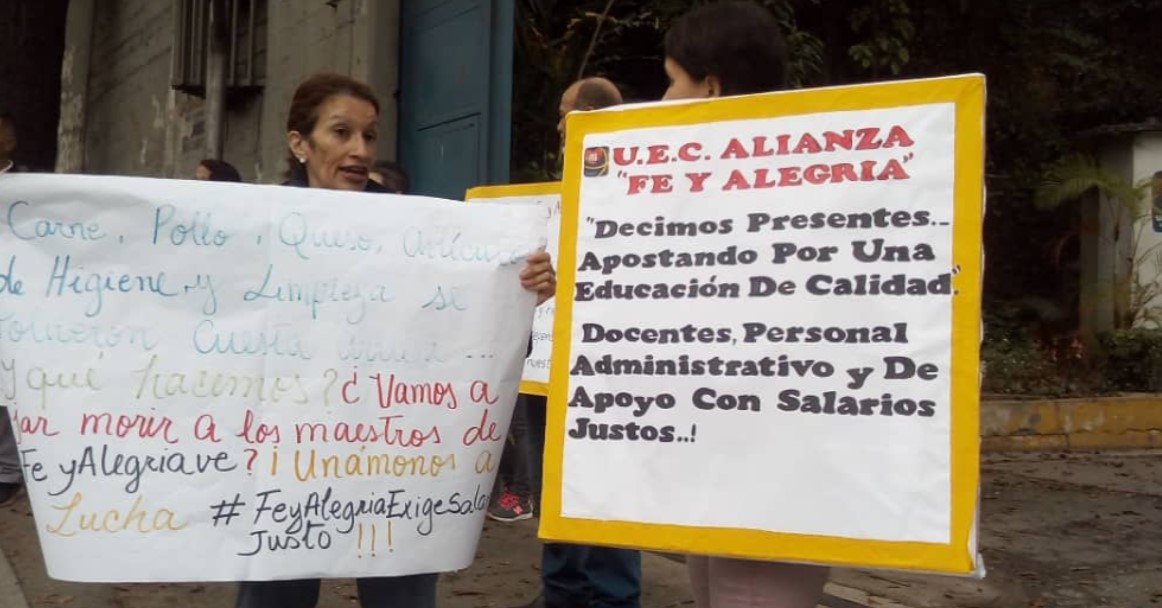 Carne, Pollo, Queso, Artículos
de Higiene, y Limpieza se
volvieron cuesta arriba...
Y qué hacemos? ¿Vamos a
jar morir a los maestros de
Fe yAlegriave? ¡Unámonos a
Lucha #FeyAlegriaExigeSala
Justo!!!
U.E.C. ALIANZA
"FE Y ALEGRIA"
"Decimos Presentes..
Apostando Por Una
Educación De Calidad."
Docentes, Personal
Administrativo y De
Apoyo Con Salarios
Justos..!